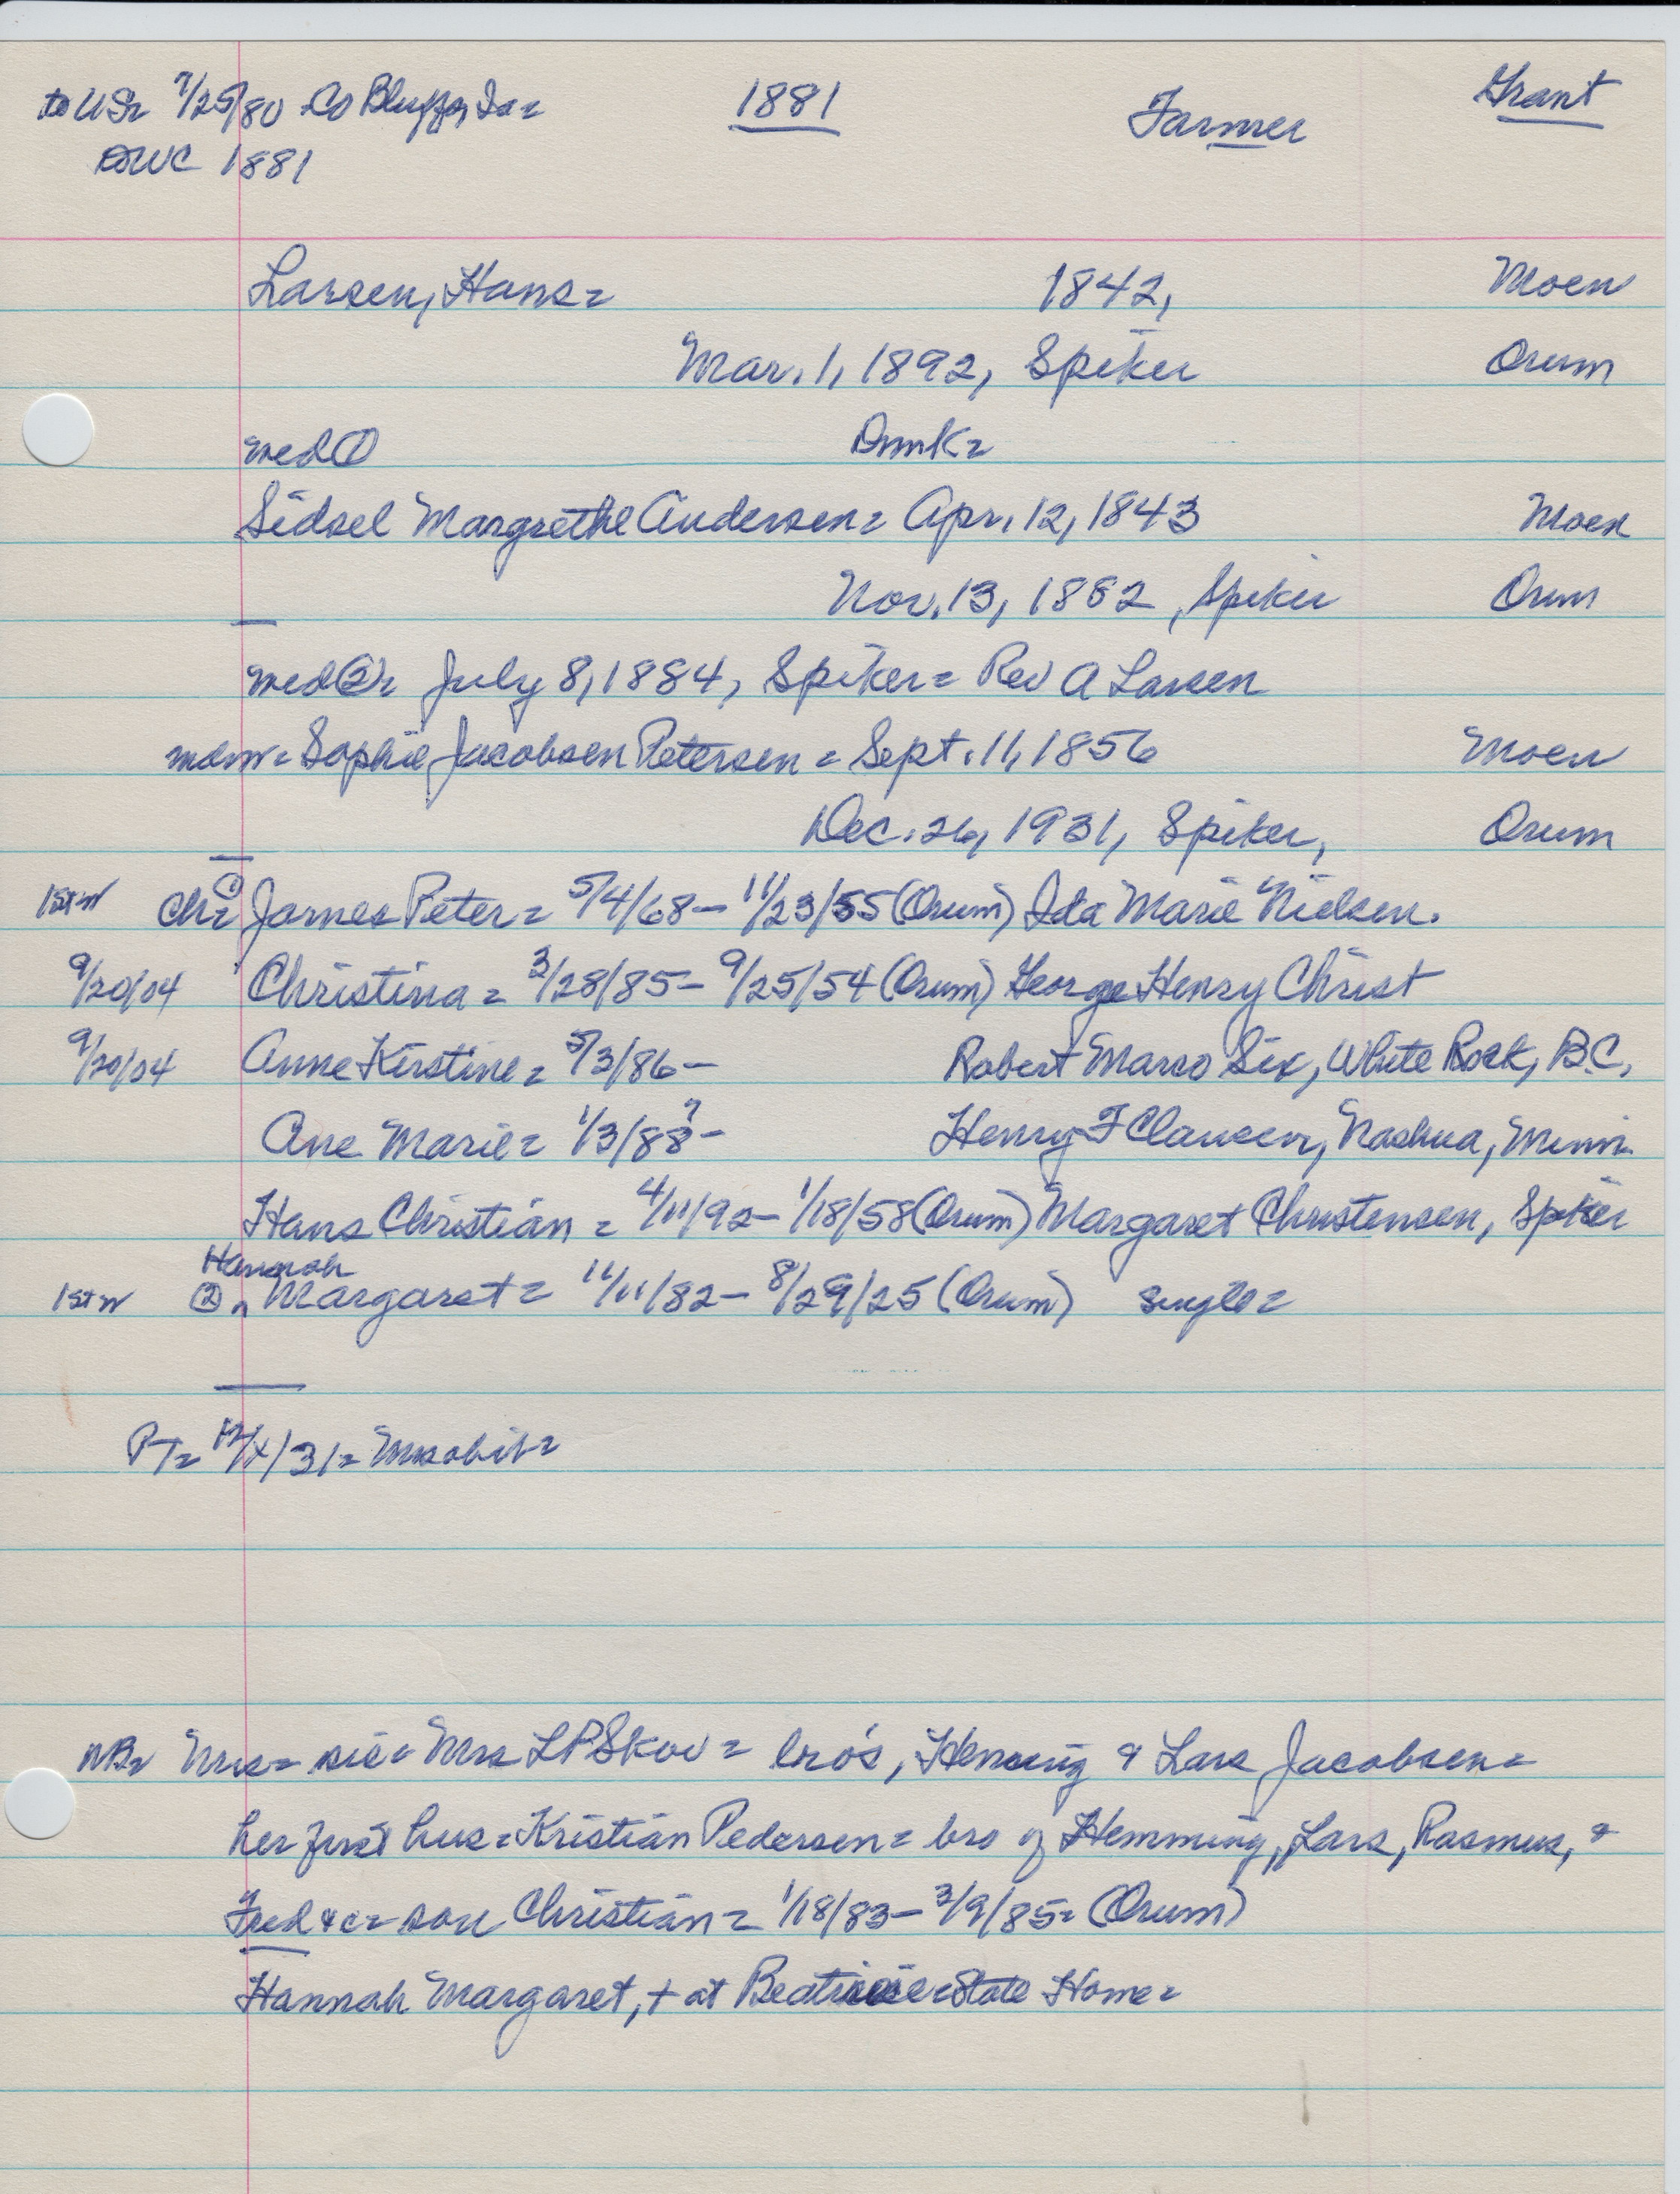 to US= 7/25/80 Co Bluffs, Ia= 1881 Farmer Grant
to WC 1881
Larsen, Hans= 1842, Moen
Mar. 1, 1892, Spiker Orum
med① Dnmk=
Sidsel Margrethe Andersen= Apr. 12, 1843 Moen
Nov. 13, 1882, Spiker Orum
med②= July 8, 1884, Spiker= Rev A Larsen
Sophie Jacobsen Petersen= Sept. 11, 1856 Moen
Dec. 26, 1931, Spiker, Orum
1st w ch= ① James Peter= 5/4/68- 11/23/55 (Orum) Ida Marie Nielsen.
9/20/04 Christina= 3/28/85- 9/25/54 (Orum) George Henry Christ
9/20/04 Anne Kirstine= 5/3/86- Robert Marco Six, White Rock, B.C.
Ane Marie= 1/3/88?- Henry F Clausen, Nashua, Minn.
Hans Christian= 4/11/92- 1/18/58 (Orum) Margaret Christensen, Spiker
Hannah
1st w ② Margaret= 11/11/82- 8/29/25 (Orum) single=
PT= 12/ /31= Mrs obit=
NB= Mrs= sis= Mrs LP Skov= bro's, Henning & Lars Jacobsen=
her first hus= Kristian Pedersen= bro of Hemming, Lars, Rasmus, &
Fred &c= son Christian= 1/18/83- 3/9/85= (Orum)
Hannah Margaret, + at Beatrice State Home=